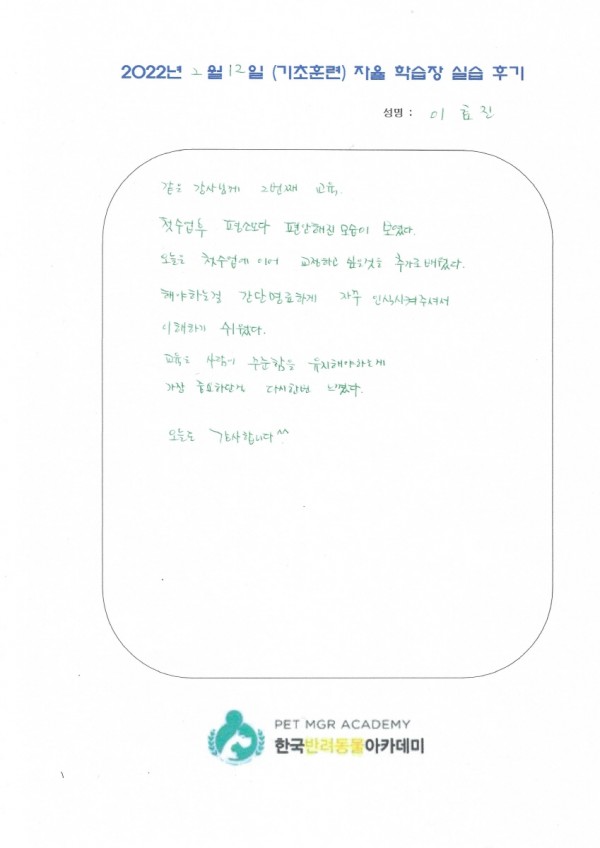 2022년 2월 12일 (기초훈련) 자율 학습장 실습 후기
성명 : 이효진
같은 강사님께 2번째 교육.
첫수업후 평소보다 편안해진 모습이 보였다.
오늘은 첫수업에 이어 교정하고 싶은것을 추가로 배웠다.
해야하는걸 간단명료하게 자꾸 인식시켜주셔서
이해하기 쉬웠다.
교육은 사람이 꾸준함을 유지해야하는게
가장 중요하단걸 다시한번 느꼈다.
오늘도 감사합니다^^
PET MGR ACADEMY
한국반려동물아카데미